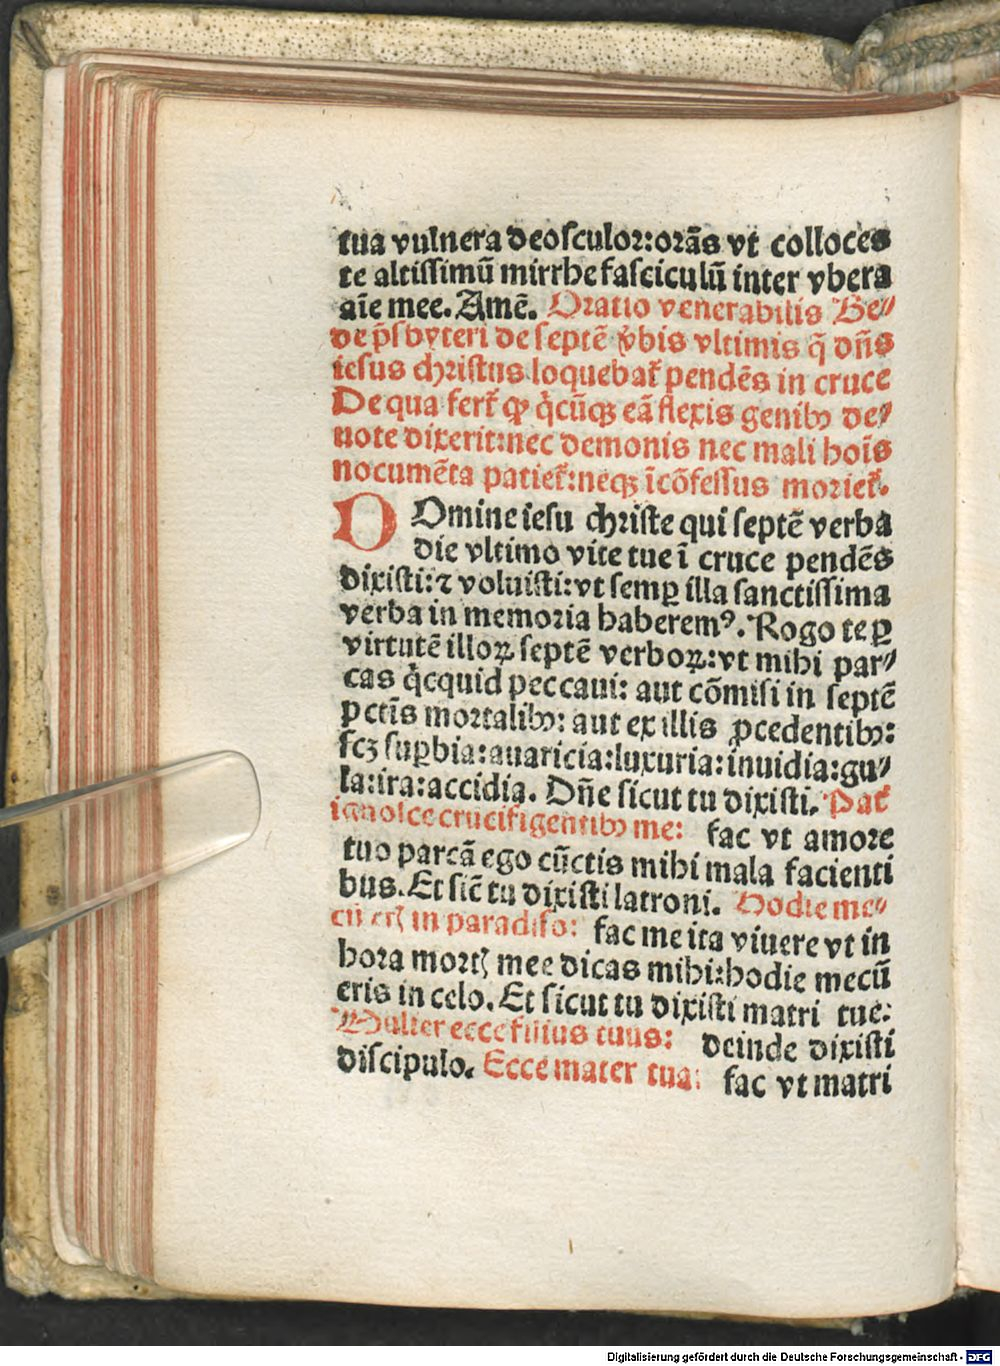 tua vulnera deosculor:orãs vt colloces
te altissimũ mirrhe fasciculũ inter vbera
aĩe mee. Amẽ. Oratio venerabilis Be⸗
de p̃sbyteri de septẽ v̾bis vltimis q̃ dñs
iesus christus loquebat᷑ pendẽs in cruce
De qua fert᷑ ꝙ q̇cũqꝫ eã flexis genibꝫ de⸗
uote dixerit:nec demonis nec mali hoĩs
nocumẽta patiet᷑:neqꝫ ĩcõfessus moriet᷑.
O Domine iesu christe qui septẽ verba
die vltimo vite tue ĩ cruce pendẽs
dixisti:⁊ voluisti:vt semꝑ illa sanctissima
verba in memoria haberemꝰ. Rogo te ꝑ
virtutẽ illoꝝ septẽ verboꝝ:vt mihi par⸗
cas q̇cquid peccaui: aut cõmisi in septẽ
pctĩs mortalibꝫ: aut ex illis ꝓcedentibꝫ:
scꝫ suꝑbia:auaricia:luxuria:inuidia:gu⸗
la:ira:accidia. Dñe sicut tu dixisti. Pat᷑
ignosce crucifigentibꝫ me: fac vt amore
tuo parcã ego cũctis mihi mala facienti
bus. Et sic̃ tu dixisti latroni. Hodie me⸗
cũ erꝭ in paradiso: fac me ita viuere vt in
hora mortꝭ mee dicas mihi:hodie mecũ
eris in celo. Et sicut tu dixisti matri tue:
Mulier ecce filius tuus: deinde dixisti
discipulo. Ecce mater tua: fac vt matri
Digitalisierung gefördert durch die Deutsche Forschungsgemeinschaft - DFG